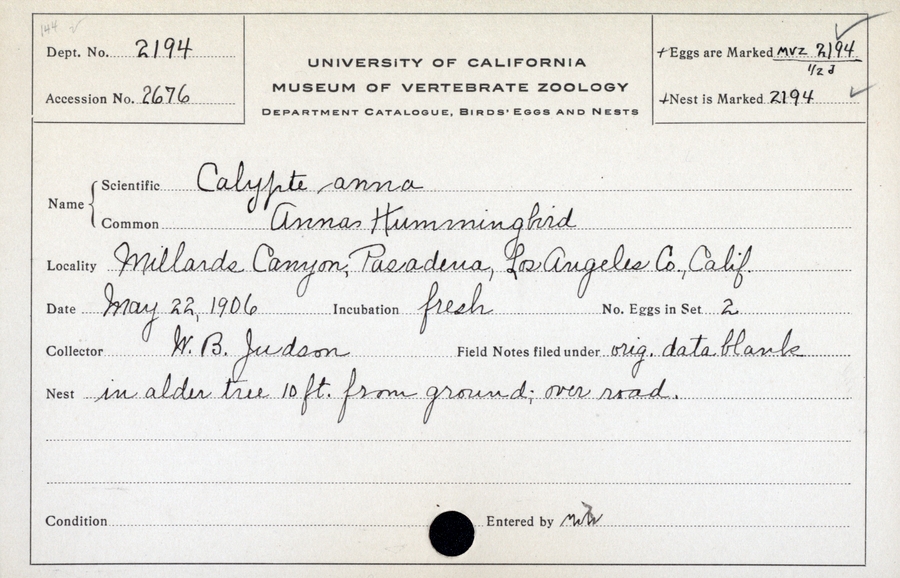 144
Dept. No. 2194
Accession No. 2676
UNIVERSITY OF CALIFORNIA
MUSEUM OF VERTEBRATE ZOOLOGY
DEPARTMENT CATALOGUE, BIRDS' EGGS AND NESTS
+Eggs are Marked MVZ 2194
1/2 d
+Nest is Marked 2194
Name { Scientific Calypte anna
Common Annas Hummingbird
Locality Millards Canyon, Pasadena, Los Angeles Co., Calif.
Date May 22, 1906 Incubation fresh No. Eggs in Set 2
Collector W. B. Judson Field Notes filed under orig. data blank
Nest in alder tree 10 ft. from ground; over road.
Condition Entered by